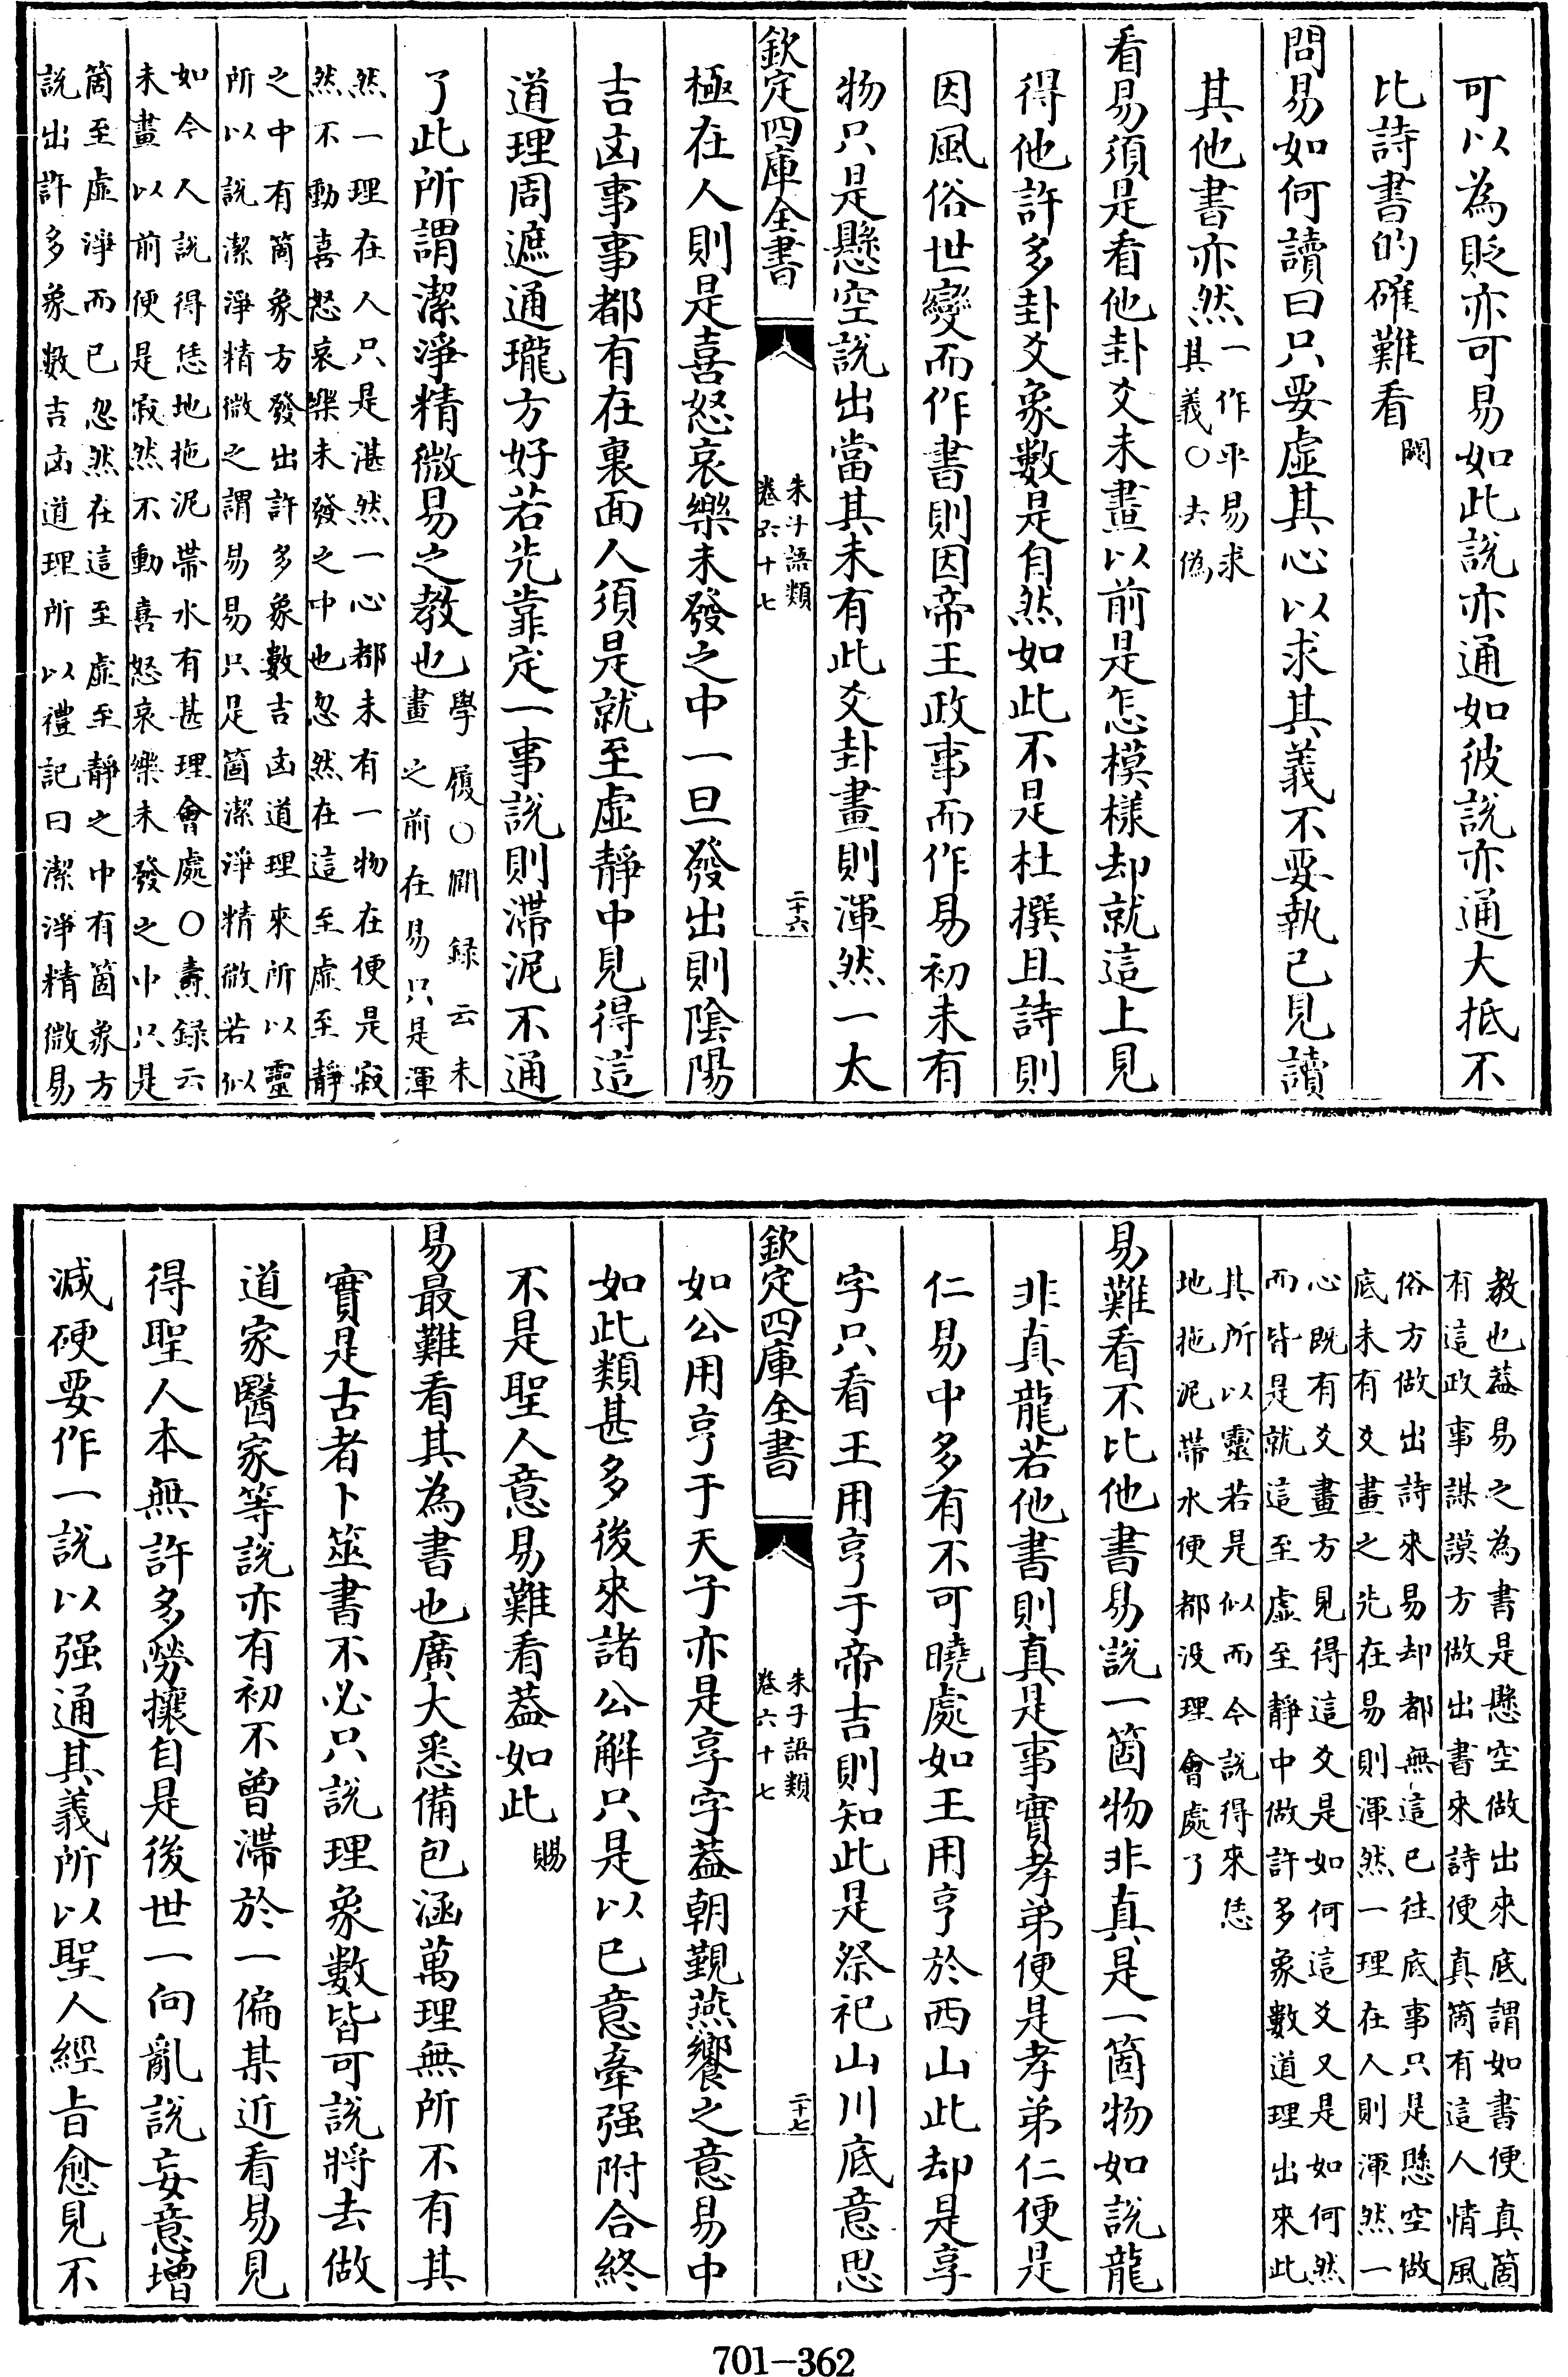 可以為貶亦可易如此説亦通如彼説亦通大抵不
比詩書的確難看閎
問易如何讀曰只要虚其心以求其義不要執己見讀
其他書亦然一作平易求
其義○去偽
看易須是看他卦爻未畫以前是怎模樣却就這上見
得他許多卦爻象數是自然如此不是杜撰且詩則
因風俗世變而作書則因帝王政事而作易初未有
物只是懸空説出當其未有此爻卦畫則渾然一太
欽定四庫全書
朱子語類
卷六十七
二十六
極在人則是喜怒哀樂未發之中一旦發出則陰陽
吉凶事事都有在裏面人須是就至虚靜中見得這
道理周遮通瓏方好若先靠定一事説則滯泥不通
了此所謂潔淨精微易之教也學履○㽦録云未
畫之前在易只是渾
然一理在人只是湛然一心都未有一物在便是寂
然不動喜怒哀樂未發之中也忽然在這至虚至靜
之中有箇象方發出許多象數吉凶道理來所以靈
所以説潔淨精微之謂易易只是箇潔淨精微若似
如今人説得恁地拖泥帶水有甚理會處○燾録云
未畫以前便是寂然不動喜怒哀樂未發之中只是
箇至虚淨而已忽然在這至虚至靜之中有箇象方
説出許多象數吉凶道理所以禮記曰潔淨精微易
教也葢易之為書是懸空做出來底謂如書便真箇
有這政事謀謨方做出書來詩便真箇有這人情風
俗方做出詩來易却都無這已往底事只是懸空做
底未有爻畫之先在易則渾然一理在人則渾然一
心既有爻畫方見得這爻是如何這爻又是如何然
而皆是就這至虚至靜中做許多象數道理出來此
其所以靈若是似而今説得來恁
地拖泥帶水便都没理會處了
易難看不比他書易説一箇物非真是一箇物如説龍
非真龍若他書則真是事實孝弟便是孝弟仁便是
仁易中多有不可曉處如王用亨於西山此却是享
字只看王用亨于帝吉則知此是祭祀山川底意思
欽定四庫全書
朱子語類
卷六十七
二十七
如公用亨于天子亦是享字葢朝覲燕饗之意易中
如此類甚多後來諸公解只是以己意牽强附合終
不是聖人意易難看葢如此賜
易最難看其為書也廣大悉備包涵萬理無所不有其
實是古者卜筮書不必只説理象數皆可説將去做
道家醫家等説亦有初不曾滯於一偏某近看易見
得聖人本無許多勞攘自是後世一向亂説妄意增
減硬要作一説以强通其義所以聖人經旨愈見不
701—362